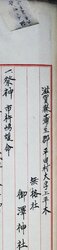 滋賀縣蒲生郡平田村大字上平木
無格社
御澤神社
一祭神 市杵嶋姫命